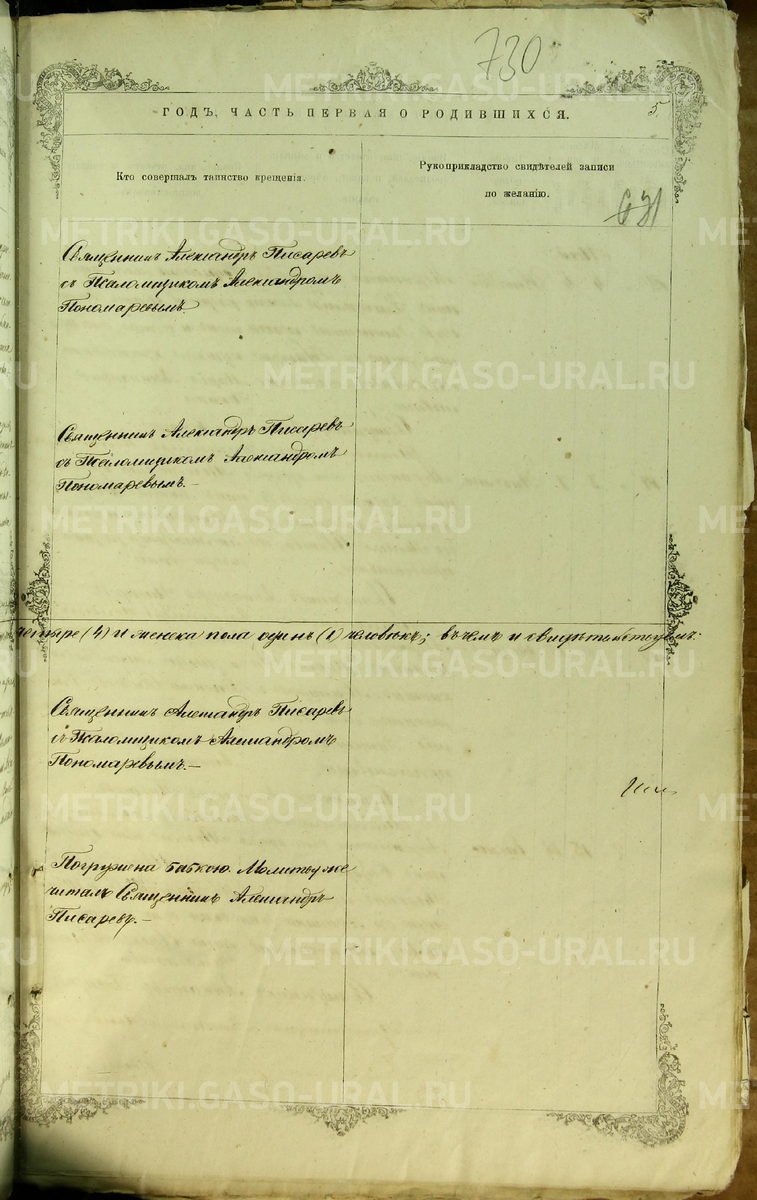 730
ГОДЪ, ЧАСТЬ ПЕРВАЯ О РОДИВШИХСЯ.
5
Кто совершалъ таинство крещенія.
Рукоприкладство свидѣтелей записи
по желанію.
Священникъ Александръ Писаревъ
съ Псаломщикомъ Александромъ
Пономаревымъ.
Священникъ Александръ Писаревъ
съ Псаломщикомъ Александромъ
Пономаревымъ.—
четыре (4) и женска пола одинъ (1) человѣкъ; въ чемъ и свидѣтельствуемъ:
Священникъ Александръ Писаревъ
съ Псаломщикомъ Александромъ
Пономаревымъ.—
Погружена бабкою. Молитву же
читалъ Священникъ Александръ
Писаревъ.—
METRIKI.GASO-URAL.RU